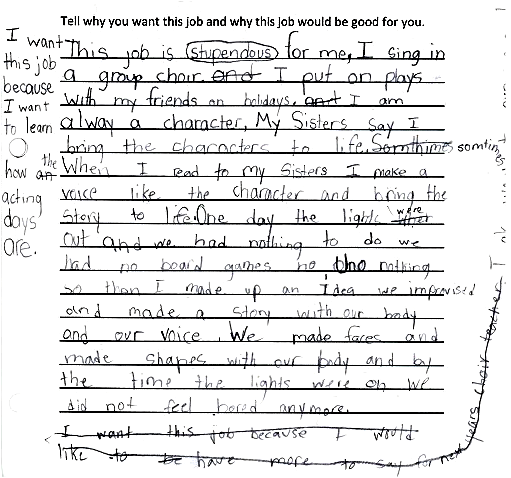 Tell why you want this job and why this job would be good for you.
I want
this job
because
I want
to learn
how the an
acting
days
are.
This job is stupendous for me, I sing in
a group choir. and I put on plays
with my friends on holidays. and I am
alway a character, My Sisters say I
bring the characters to life. Somthimes somtimes,
When I read to my Sisters I make a
voice like the character and bring the
story to life. One day the lights were
out and we had nothing to do we
had no board games no nothing
so than I made up an Idea we improvised
and made a story with our body
and our voice. We made faces and
made shapes with our body and by
the time the lights were on we
did not feel bored anymore.
I want this job because I would
like to be have more to say for next
years choir teacher